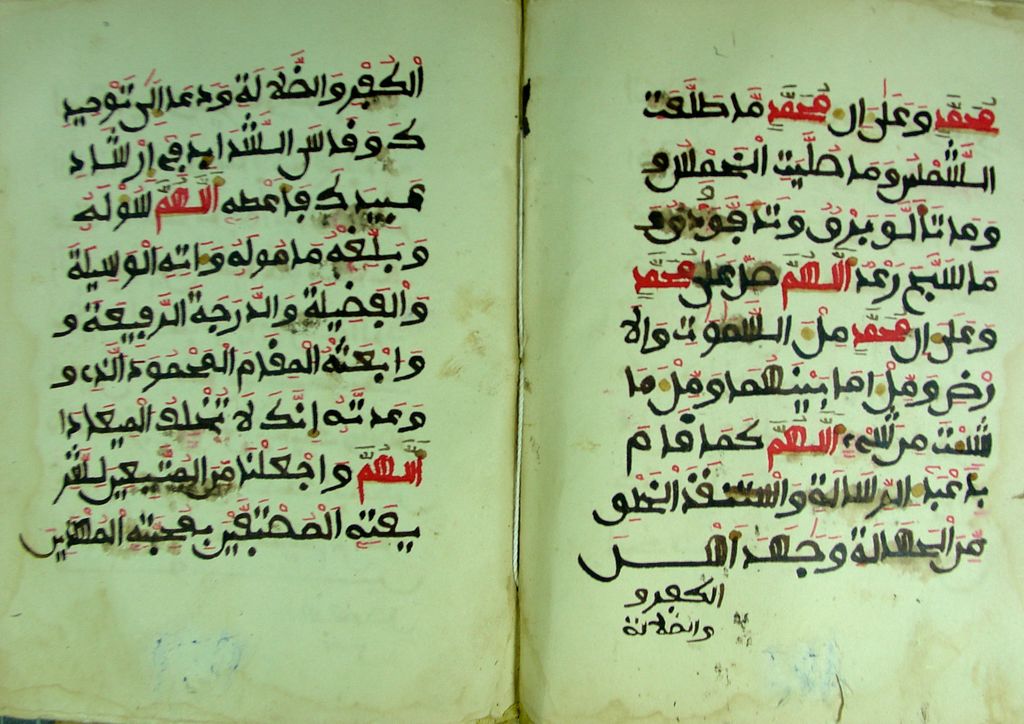 محمد وعلى ال محمد ما طلعت
الشمس وما صليت الخمس و
وما تالق برق وتدفق ودق و
ما سبح رعد اللهم صل على محمد
وعلى ال محمد مل السموت والا
رض ومل ما بينهما ومل ما
شئت من شيء اللهم كما قام
الرسالة واستنقذ الخلق
من الجهالة وجهد اهل
الكفر و
والضلالة
الكفر والضلالة ودعا الى توحيد
ك وقاس الشدايد في ارشاد
عبيدك فاعطه اللهم سوله
وبلغه ماموله واته الوسيلة
والفضيلة والدرجة الرفيعة و
وابعثه المقام المحمود الذي و
وعدته انك لا تخلف الميعاد
اللهم واجعلنا من المتبعين لشر
يعته بمحبته المهتدين